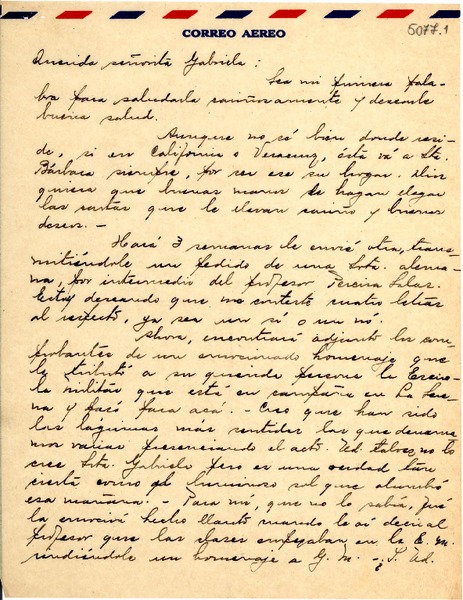 CORREO AEREO
5077.1
Querida señorita Gabriela:
Sea mi primera pala-
bra para saludarla cariñosamente y desearle
buena salud.
Aunque no sé bien donde resi-
de, si en California o Veracruz, ésta vá a Sta.
Bárbara siempre, por ser ese su hogar. Dios
quiera que buenas manos le hagan llegar
las cartas que le llevan cariño y buenos
deseos. -
Hará 3 semanas le envié otra, trans-
mitiéndole un pedido de una Srta. alema-
na, por intermedio del profesor Pereira Salas.
Estoy deseando que me conteste cuatro letras
al respecto, ya sea un sí o un nó.
Ahora, encontrará adjunto los com-
probantes de un emocionado homenaje que
le tributó a su querida persona la Escue-
la militar que está en campaña en La Sere-
na y pasó para acá. - Creo que han sido
las lágrimas más sentidas las que derrama-
mos varias presenciando el acto. Ud. talvez no lo
cree Srta. Gabriela pero es una verdad tan
cierta como el luminoso sol que alumbró
esa mañana. - Para mí, que no lo sabía, fué
la emoción hecha llanto cuando le oí decir al
profesor que las clases empezaban en la E. M.
rindiéndole un homenaje a G. M. - ¿ Ud.